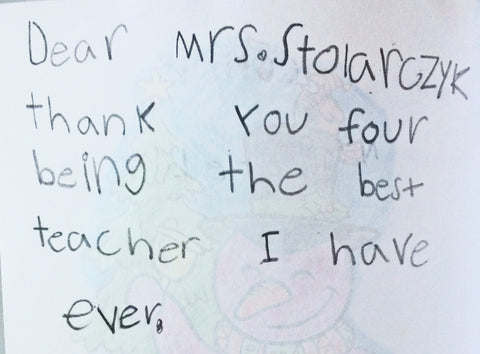 Dear Mrs. Stolarczyk
thank You four
being the best
teacher I have
ever.